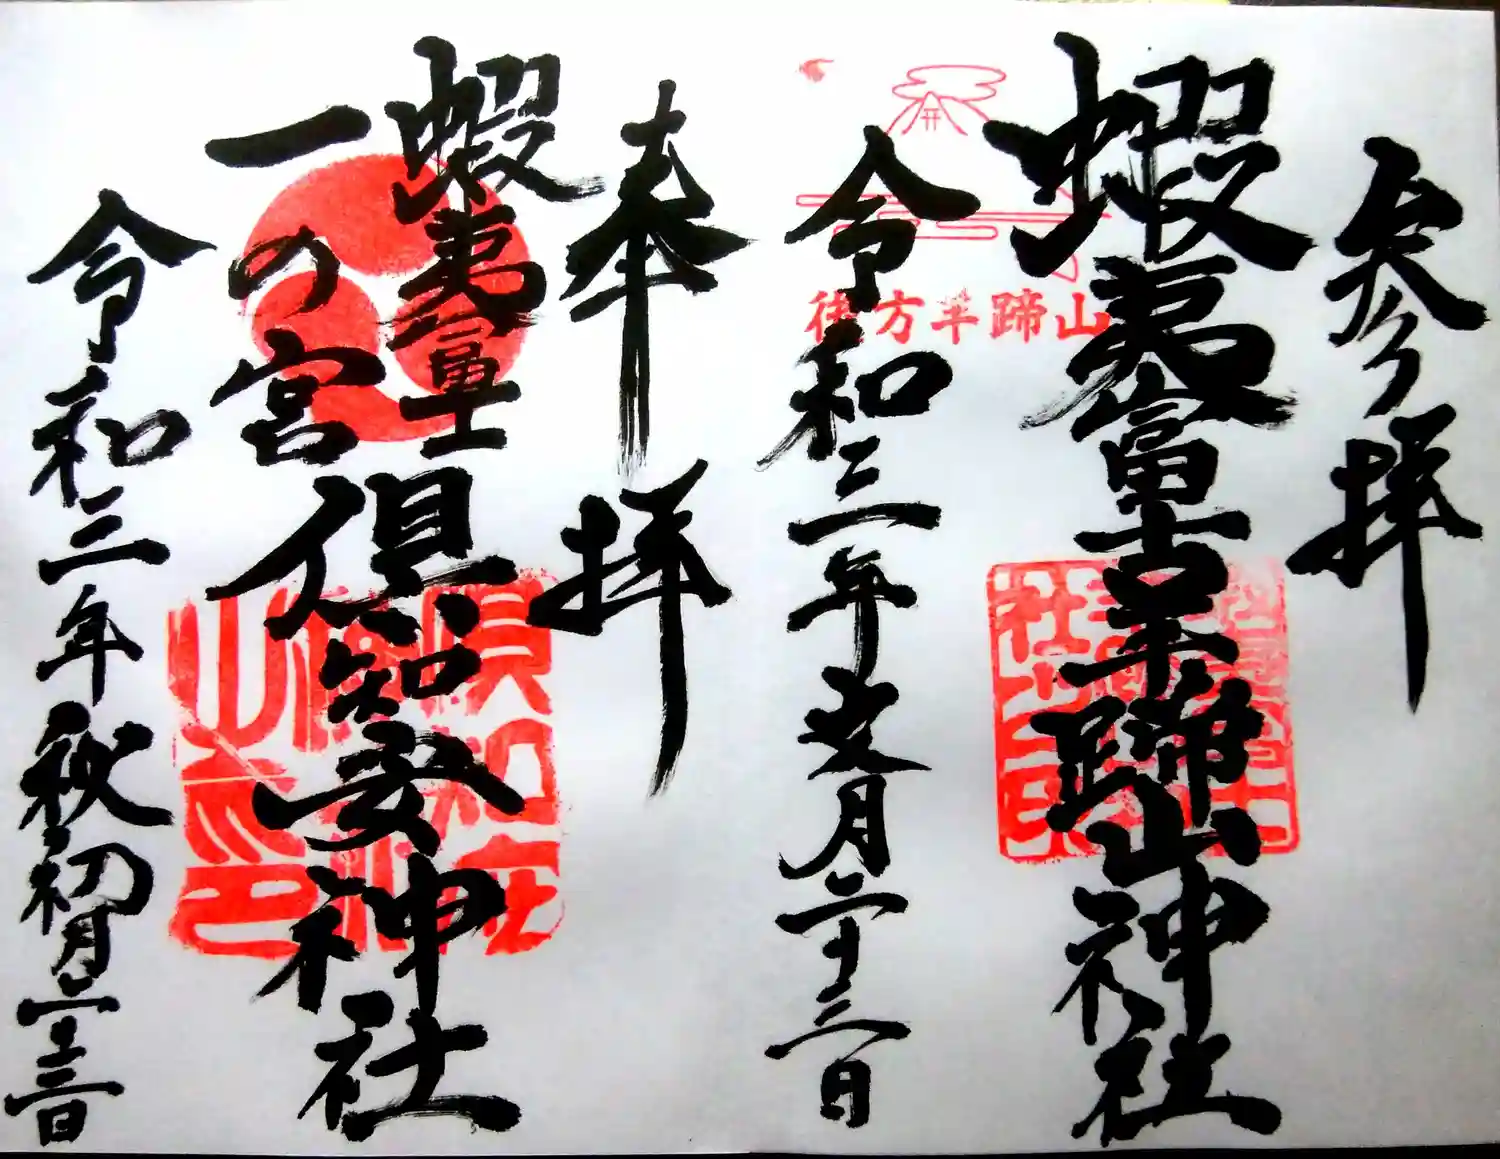 参拝
蝦夷富士羊蹄山神社
後方羊蹄山
令和三年文月二十三日
奉拝
蝦夷富士
一の宮
倶知安神社
令和三年秋初月二十三日